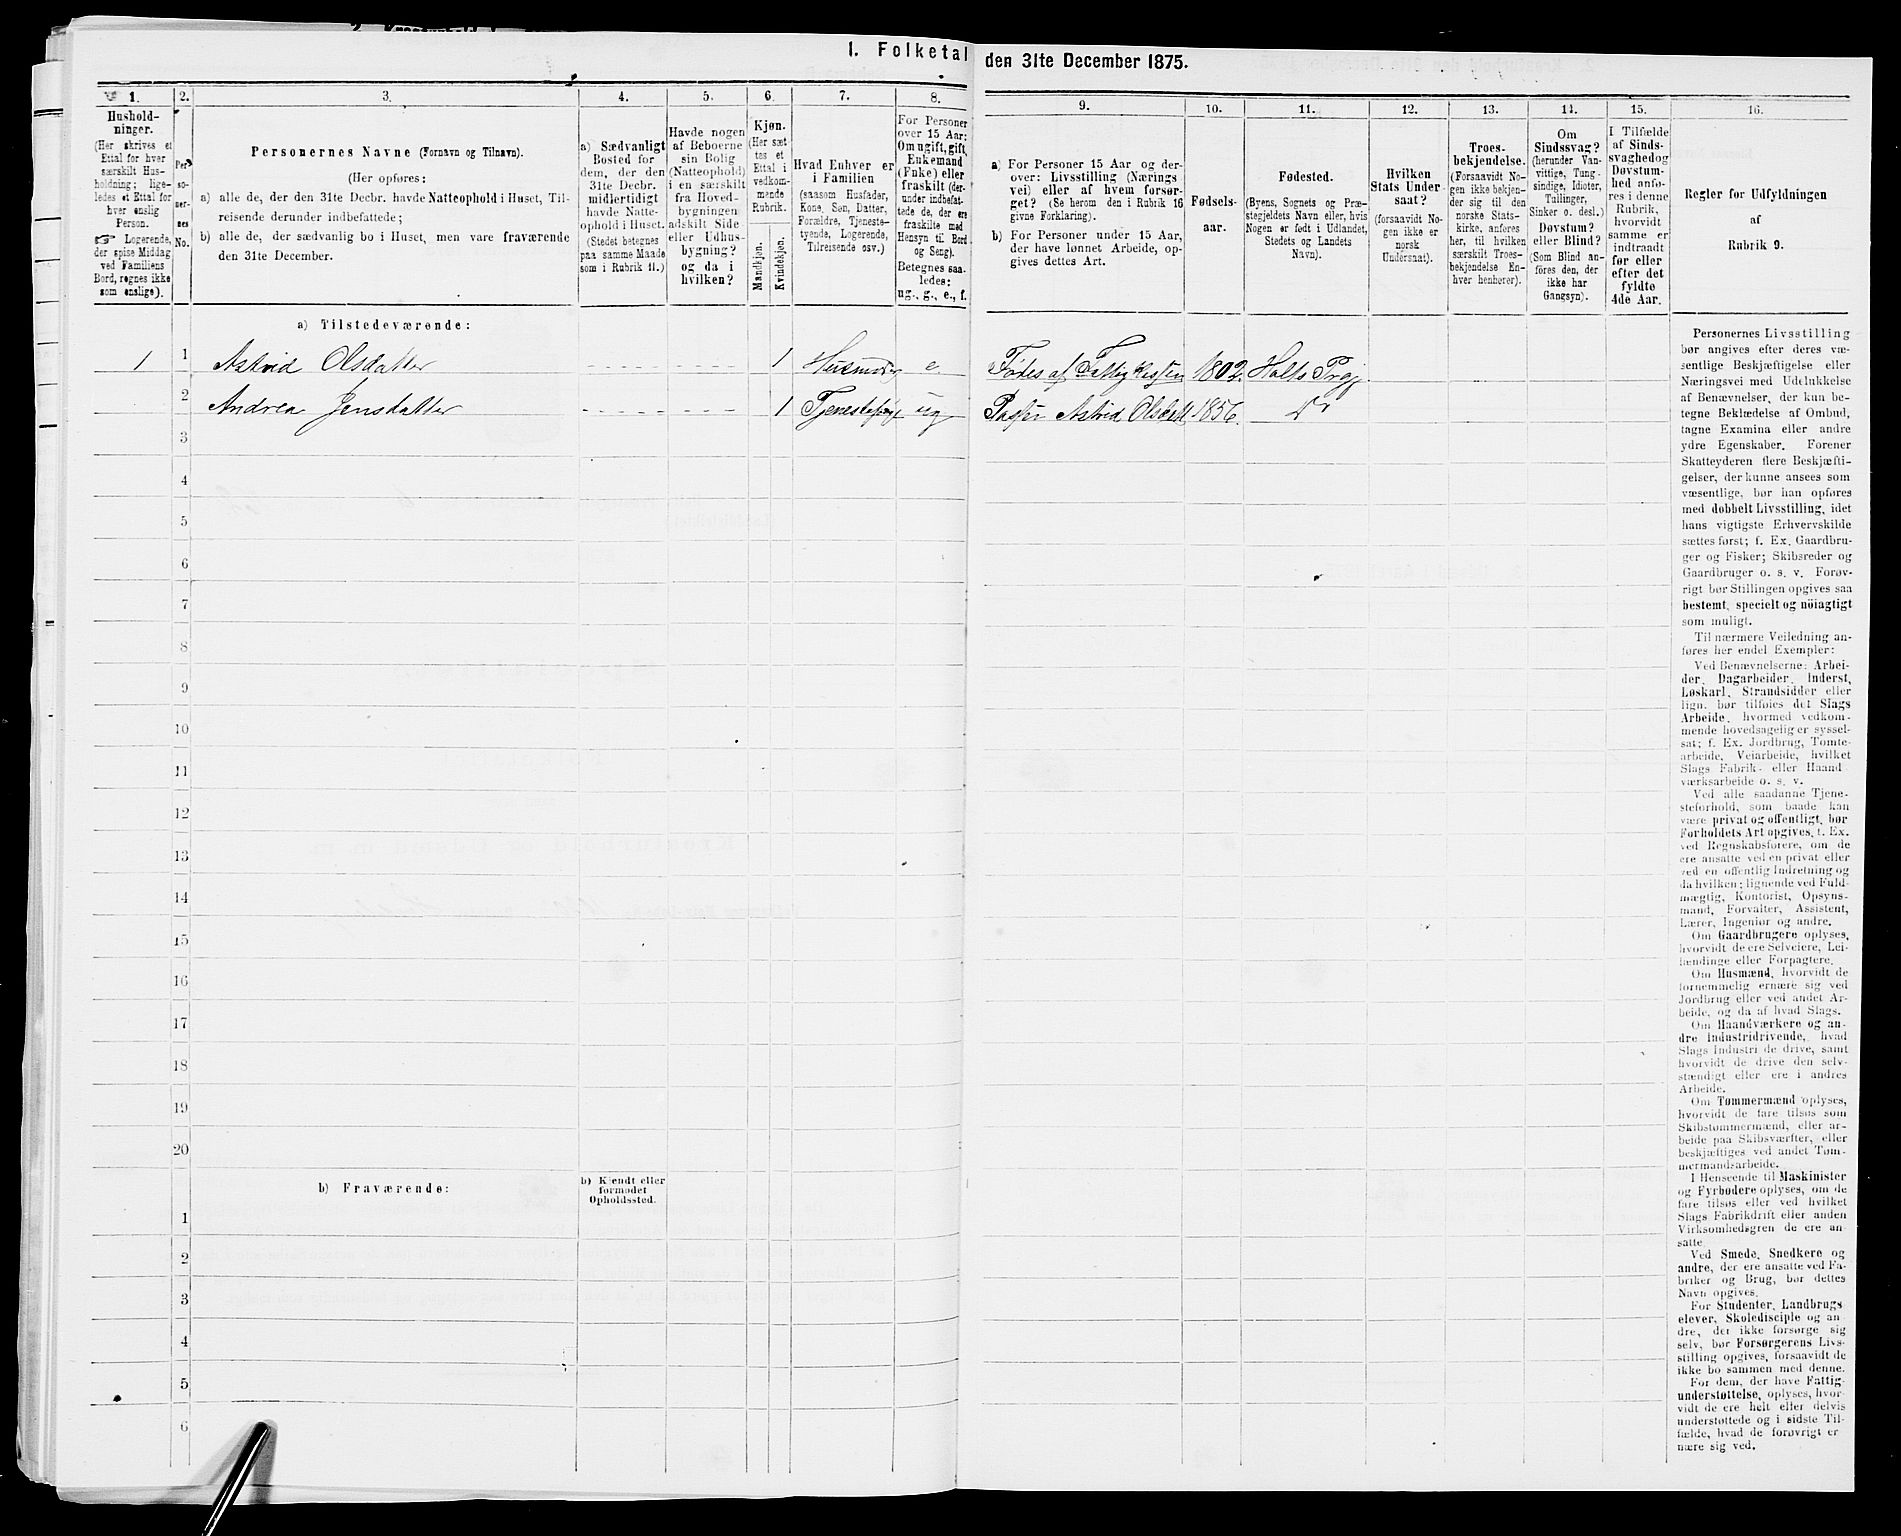 1. Folketal den 31te December 1875.
1. 2. 3. 4. 5. 6. 7. 8. 9. 10. 11. 12. 13. 14. 15. 16.
Hushold-
ninger.
(Her skrives et
Ettal for hver
særskilt Hus-
holdning; lige-
ledes et Ettal for
hver enslig
Person.
☞ Logerende,
der spise Middag
ved Familiens
Bord, regnes ikke
som enslige).
Per-
so-
ner-
nes
No.
Personernes Navne (Fornavn og Tilnavn).
(Her opføres:
a) alle de, der den 31te Decbr. havde Natteophold i Huset, Til-
reisende derunder indbefattede;
b) alle de, der sædvanlig bo i Huset, men vare fraværende
den 31te December.
a) Sædvanligt
Bosted for
dem, der den
31te Decbr.
midlertidigt
havde Natte-
ophold i Huset.
(Stedet betegnes
paa samme Maade
som i Rubrik 11.)
Havde nogen
af Beboerne
sin Bolig
(Natteophold)
i en særskilt
fra Hoved-
bygningen
adskilt Side-
eller Udhus-
bygning?
og da i
hvilken?
Kjøn.
(Her sæt-
tes et
Ettal i
vedkom-
mende
Rubrik.
Mandkjøn.
Kvindekjøn.
Hvad Enhver er
i Familien
(saasom Husfader,
Kone, Søn, Datter,
Forældre, Tjeneste-
tyende, Logerende,
Tilreisende osv.)
For Personer
over 15 Aar:
Om ugift, gift,
Enkemand
(Enke) eller
fraskilt (der-
under indbefat-
tede de, der ere
fraskilte med
Hensyn til Bord
og Seng).
Betegnes saa-
ledes:
ug., g., e., f.
a) For Personer 15 Aar og der-
over: Livsstilling (Nærings-
vei) eller af hvem forsør-
get? (Se herom den i Rubrik 16
givne Forklaring).
b) For Personer under 15 Aar,
der have lønnet Arbeide, op-
gives dettes Art.
Fødsels-
aar.
Fødested.
(Byens, Sognets og Præ-
stegjeldets Navn eller, hvis
Nogen er født i Udlandet,
Stedets og Landets
Navn).
Hvilken
Stats Under-
saat?
(forsaavidt No-
gen ikke er
norsk
Undersaat).
Troes-
bekjendelse.
(Forsaavidt No-
gen ikke bekjen-
der sig til den
norske Stats-
kirke, anføres
her, til hvilken
særskilt Troes-
bekjendelse En-
hver henhører).
Om
Sindssvag?
(herunder Van-
vittige, Tung-
sindige, Idioter,
Tullinger,
Sinker o. desl.)
Døvstum?
eller Blind?
(Som Blind an-
føres den, der
ikke har
Gangsyn).
I Tilfælde
af Sinds-
svaghed og
Døvstum-
hed anfø-
res i denne
Rubrik,
hvorvidt
samme er
indtraadt
før eller
efter det
fyldte
4de Aar.
Regler for Udfyldningen
af
Rubrik 9.
a) Tilstedeværende:
1 1 Astrid Olsdatter 1 Husmoder e. Fødes af Fattigkassen 1802. Holts Prgj.
2 Andrea Jensdatter 1 ug 1856. Do
3
4
5
6
7
8
9
10
11
12
13
14
15
16
17
18
19
20
b) Fraværende:
b) Kjendt eller
formodet
Opholdssted.
1
2
3
4
5
6
Personernes Livsstilling
bør angives efter deres væ-
sentlige Beskjæftigelse eller
Næringsvei med Udelukkelse
af Benævnelser, der kun be-
tegne Beklædelse af Ombud,
tagne Examina eller andre
ydre Egenskaber. Forener
Skatteyderen flere Beskjæfti-
gelser, der kunne ansees som
væsentlige, bør han opføres
med dobbelt Livsstilling, idet
hans vigtigste Erhvervskilde
sættes først; f. Ex. Gaardbru-
ger og Fisker; Skibsreder og
Gaardbruger o. s. v. Forøv-
rigt bør Stillingen opgives saa
bestemt, specielt og nöiagtigt
som muligt.
Til nærmere Veiledning an-
føres her endel Exempler:
Ved Benævnelserne: Arbei-
der, Dagarbeider, Inderst,
Løskarl, Strandsidder eller
lign. bør tilføies det Slags
Arbeide, hvormed vedkom-
mende hovedsagelig er syssel-
sat; f. Ex. Jordbrug, Tomte-
arbeide, Veiarbeide, hvilket
Slags Fabrik- eller Haand-
værksarbeide o. s. v.
Ved alle saadanne Tjene-
steforhold, som baade kan
være privat og offentligt, bør
Forholdets Art opgives, f. Ex.
ved Regnskabsførere, om de
ere ansatte ved en privat eller
ved en offentlig Indretning og
da hvilken; lignende ved Fuld-
mægtig, Kontorist, Opsyns-
mand, Forvalter, Assistent,
Lærer, Ingeniør og andre.
Om Gaardbrugere oplyses,
hvorvidt de ere Selveiere, Lei-
lændinge eller Forpagtere.
Om Husmænd, hvorvidt de
fornemmelig ernære sig ved
Jordbrug eller ved andet Ar-
beide, og da af hvad Slags.
Om Haandværkere og an-
dre Industridrivende, hvad
Slags Industri de drive, samt
hvorvidt de drive den selv-
stændigt eller ere i andres
Arbeide.
Om Tømmermænd oplyses,
hvorvidt de fare tilsøs som
Skibstømmermænd, eller ar-
beide paa Skibsværfter, eller
beskjæftiges ved andet Tøm-
mermandsarbeide.
I Henseende til Maskinister
og Fyrbødere oplyses, om de
fare tilsøs eller ved hvilket
Slags Fabrikdrift eller anden
Virksomhedsgren de ere an-
satte.
Ved Smede, Snedkere og
andre, der ere ansatte ved Fa-
briker og Brug, bør dettes
Navn opgives.
For Studenter, Landbrugs-
elever, Skoledisciple og an-
dre, der ikke forsørge sig
selv, bør Forsørgerens Livs-
stilling opgives, forsaavidt de
ikke bo sammen med denne.
For dem, der have Fattig-
understøttelse, oplyses, hvor-
vidt de ere helt eller delvis
understøttede og i sidste Til-
fælde, hvad de forøvrigt er-
nære sig ved.